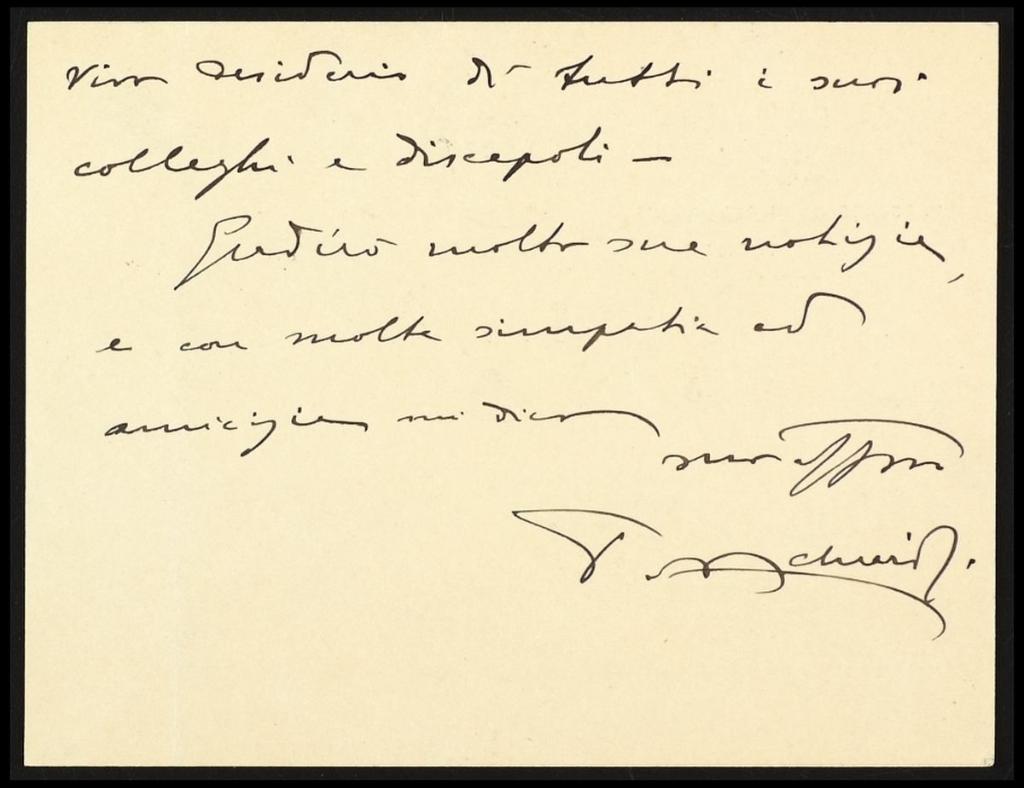 vivo desiderio di tutti i suoi
colleghi e discepoli —
Gradirò molto sue notizie,
e con molta simpatia ed
amicizia mi dico
suo aff.mo